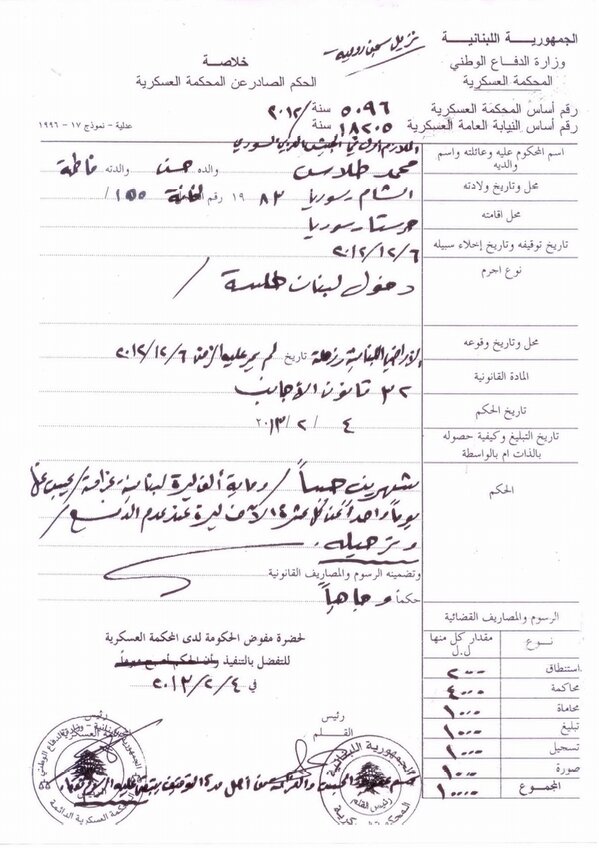 الجمهورية اللبنانية
وزارة الدفاع الوطني
المحكمة العسكرية
نزيل سجن روميه
خلاصة
الحكم الصادر عن المحكمة العسكرية
رقم أساس المحكمة العسكرية ٥٠٩٦ سنة / ٢٠١٢
رقم أساس النيابة العامة العسكرية ١٨٢٠٥ سنة
عدلية - نموذج ١٧ - ١٩٩٦
الملازم أول في الجيش العربي السوري
اسم المحكوم عليه وعائلته واسم والديه
محمد طلاس والده حسن والدته فاطمة
محل وتاريخ ولادته
الشام - سوريا ٨٣ ١٩ رقم الخانة ١٥٥ /
محل اقامته
حرستا - سوريا
تاريخ توقيفه وتاريخ إخلاء سبيله
٢٠١٢/١٢/٦
نوع اجرم
دخول لبنان خلسة /
محل وتاريخ وقوعه
الأراضي اللبنانية وزحلة تاريخ لم يمر عليه الزمن ٢٠١٢/١٢/٦
المادة القانونية
٣٢ قانون الأجانب
تاريخ الحكم
٤ / ٢ / ٢٠١٣
تاريخ التبليغ وكيفية حصوله
بالذات ام بالواسطة
الحكم
شهرين حبساً / وماية ألف ليرة لبنانية غرامة / يحبس
يوماً واحداً عن كل عشرة آلاف ليرة عند عدم الدفع /
وترحيله .
وتضمينه الرسوم والمصاريف القانونية
حكماً وجاهياً
الرسوم والمصاريف القضائية
نوع
مقدار كل منها
ل.ل
استنطاق ٢٠٠٠
محاكمة ٤٠٠٠
محاماة ١٠٠٠
تبليغ ١٠٠٠
تسجيل ١٠٠٠
صورة ١٠٠٠
المجموع ١٠٠٠٠
لحضرة مفوض الحكومة لدى المحكمة العسكرية
للتفضل بالتنفيذ وأن الحكم أصبح مبرماً
في ٢٠١٣/٢/٤
رئيس
القلم
رئيس
الجمهورية اللبنانية
رئيس القلم
المحكمة العسكرية
الجمهورية اللبنانية - وزارة الدفاع الوطني
المحكمة العسكرية الدائمة
الحبس والغرامة من أصل مدة التوقيف